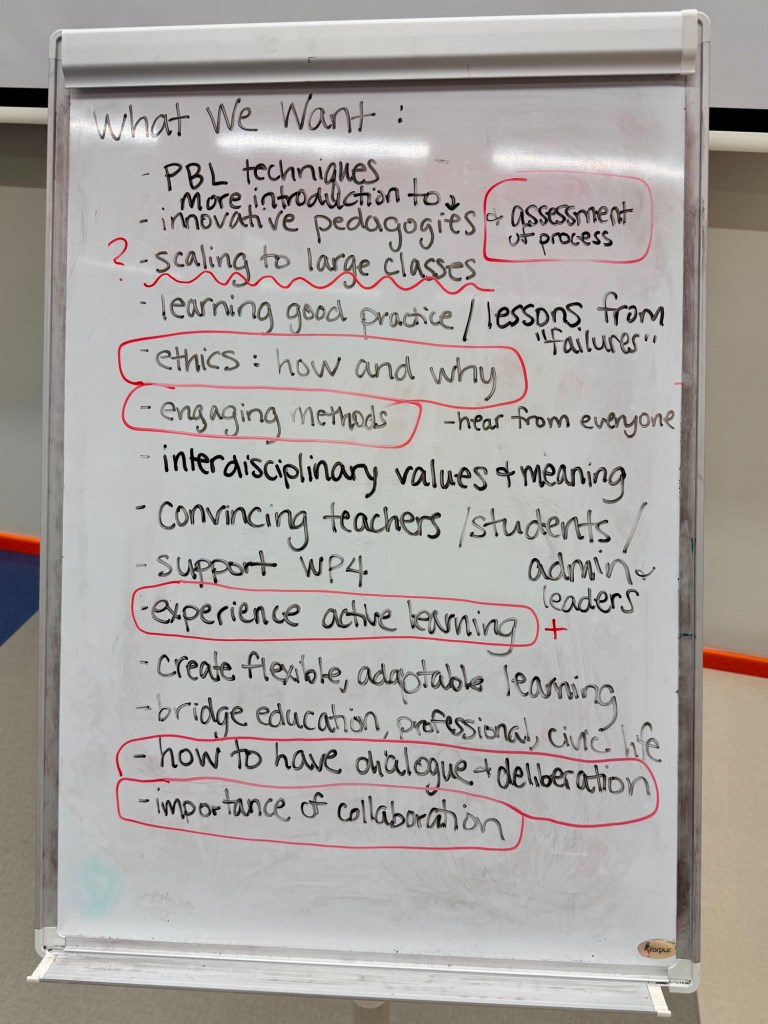 What We Want :
- PBL techniques
more introduction to ↓
- innovative pedagogies + assessment
of process
? - scaling to large classes
- learning good practice / lessons from
"failures"
- ethics : how and why
- engaging methods - hear from everyone
- interdisciplinary values + meaning
- convincing teachers / students /
admin +
leaders
- support WP4
- experience active learning +
- create flexible, adaptable learning
- bridge education, professional, civic life
- how to have dialogue + deliberation
- importance of collaboration